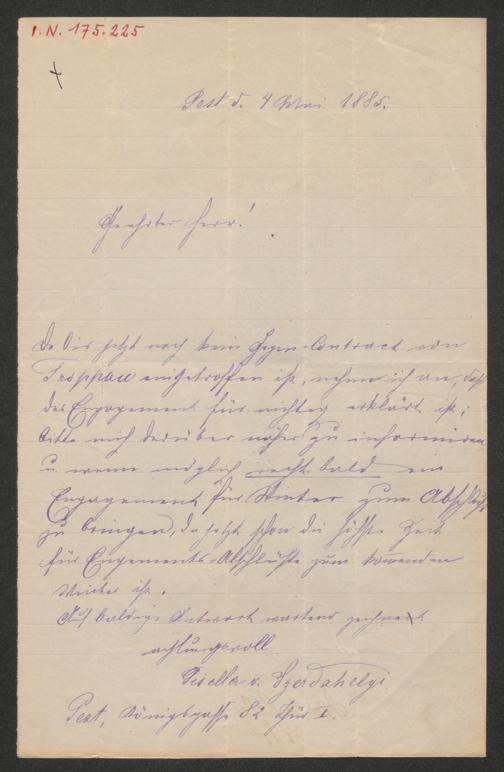 I.N. 175.225
Pest d. 4 Mai 1885.
Geehrter Herr!
Da bis jetzt noch kein Gegen-Contract von
Troppau eingetroffen ist, nehme ich an, daß
das Engagement für nichtig erklärt ist;
bitte mich darüber näher zu informiren
u. wenn möglich recht bald ein
Engagement für Winter zum Abschluß
zu bringen, da jetzt schon die höchste Zeit
für Engements-Abschlüße zum kommenden
Winter ist.
Auf baldige Antwort wartend zeichnet
achtungsvoll
Gisella v. Szerdahelyi
Pest, Königsgasse 82 Thür I.